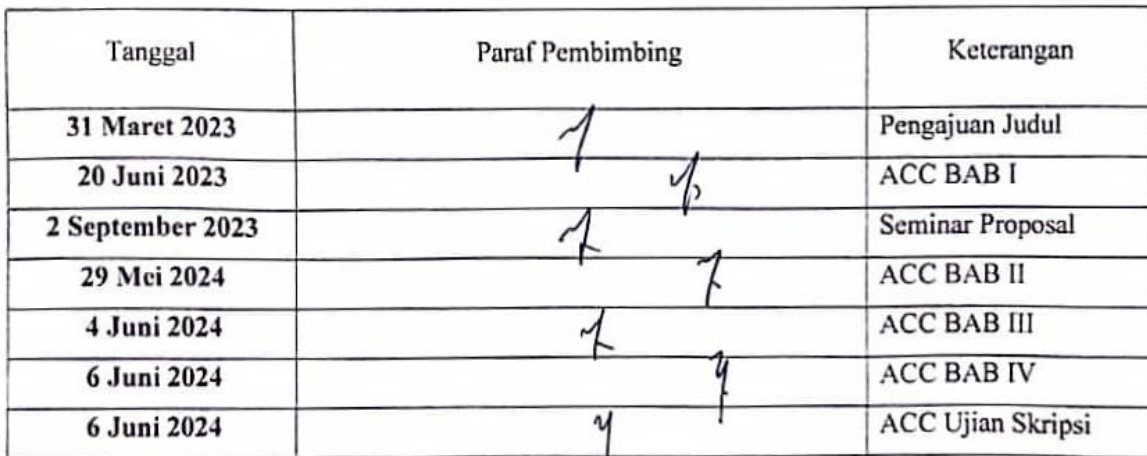 Tanggal Paraf Pembimbing Keterangan
31 Maret 2023 Pengajuan Judul
20 Juni 2023 ACC BAB I
2 September 2023 Seminar Proposal
29 Mei 2024 ACC BAB II
4 Juni 2024 ACC BAB III
6 Juni 2024 ACC BAB IV
6 Juni 2024 ACC Ujian Skripsi